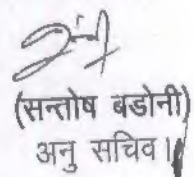 (सन्तोष बडोनी)
अनु सचिव।